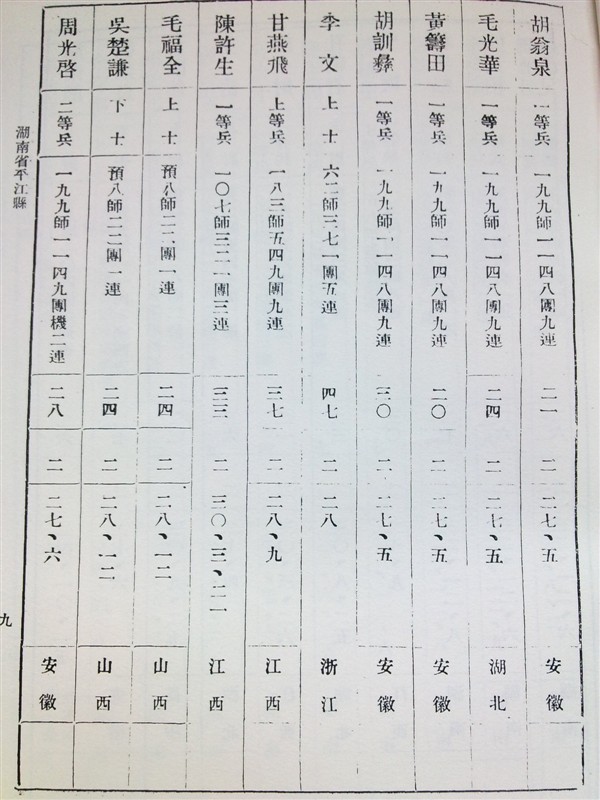 胡翁泉 一等兵 一九九師一一四八團九連 二一 二 二七、五 安徽
毛光華 一等兵 一九九師一一四八團九連 二四 二 二七、五 湖北
黃籌田 一等兵 一九九師一一四八團九連 二〇 二 二七、五 安徽
胡訓彝 一等兵 一九九師一一四八團九連 三〇 二 二七、五 安徽
李文 上士 六二師三七一團五連 四七 二 二八 浙江
甘燕飛 上等兵 一八三師五四九團九連 三七 二 二八、九 江西
陳許生 一等兵 一〇七師三二一團三連 三三 二 三〇、三、二一 江西
毛福全 上士 預八師二二團一連 二四 二 二八、一二 山西
吳楚謙 下士 預八師二二團一連 二四 二 二八、一二 山西
周光啓 二等兵 一九九師一一四九團機二連 二八 二 二七、六 安徽
湖南省平江縣
九